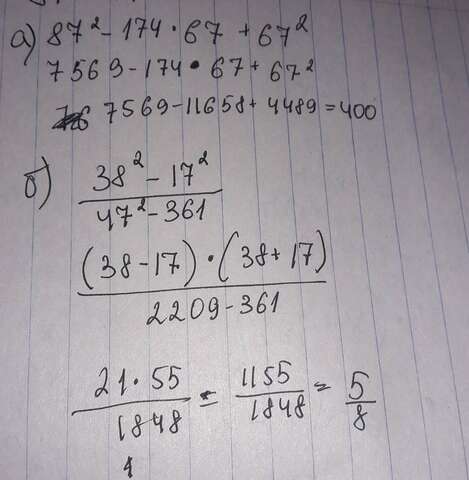 а) 87² - 174 · 67 + 67²
7569 - 174 · 67 + 67²
7569 - 11658 + 4489 = 400
б) 38² - 17² / 47² - 361
(38 - 17) · (38 + 17) / 2209 - 361
21 · 55 / 1848 = 1155 / 1848 = 5 / 8
1